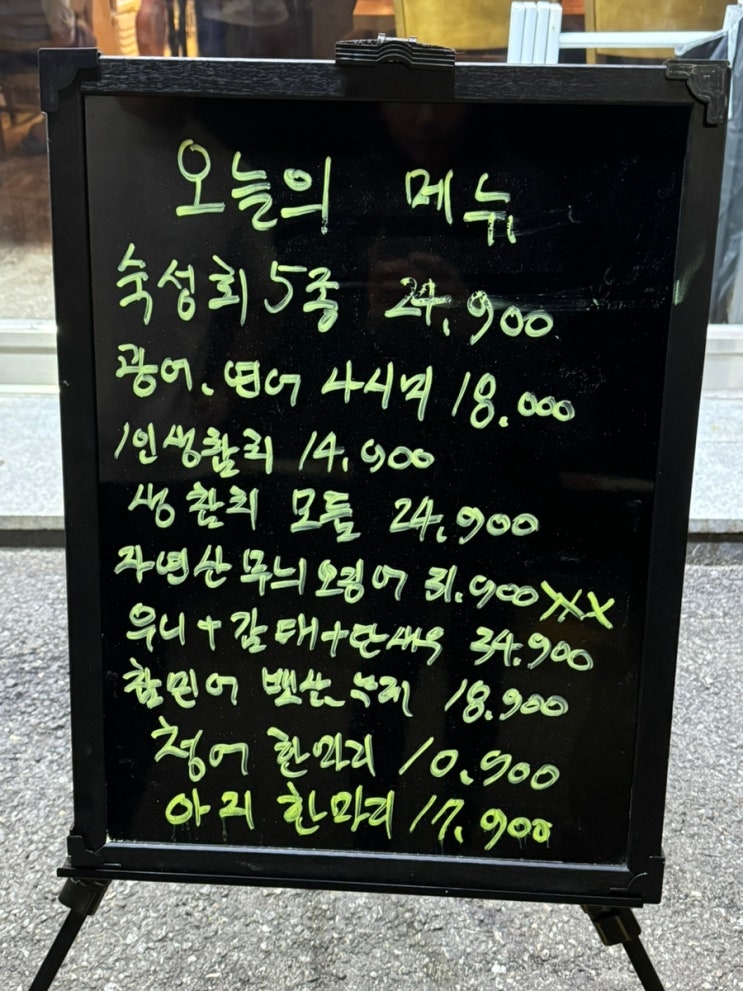 오늘의 메뉴
숙성회 5종 24.900
광어.연어 사시미 18.000
1인생참치 14.900
생참치 모듬 24.900
자연산 무늬오징어 31.900 XXX
우니+감태+단새우 34.900
참민어 뱃살 18.900
청어 한마리 10.900
아지 한마리 17.900